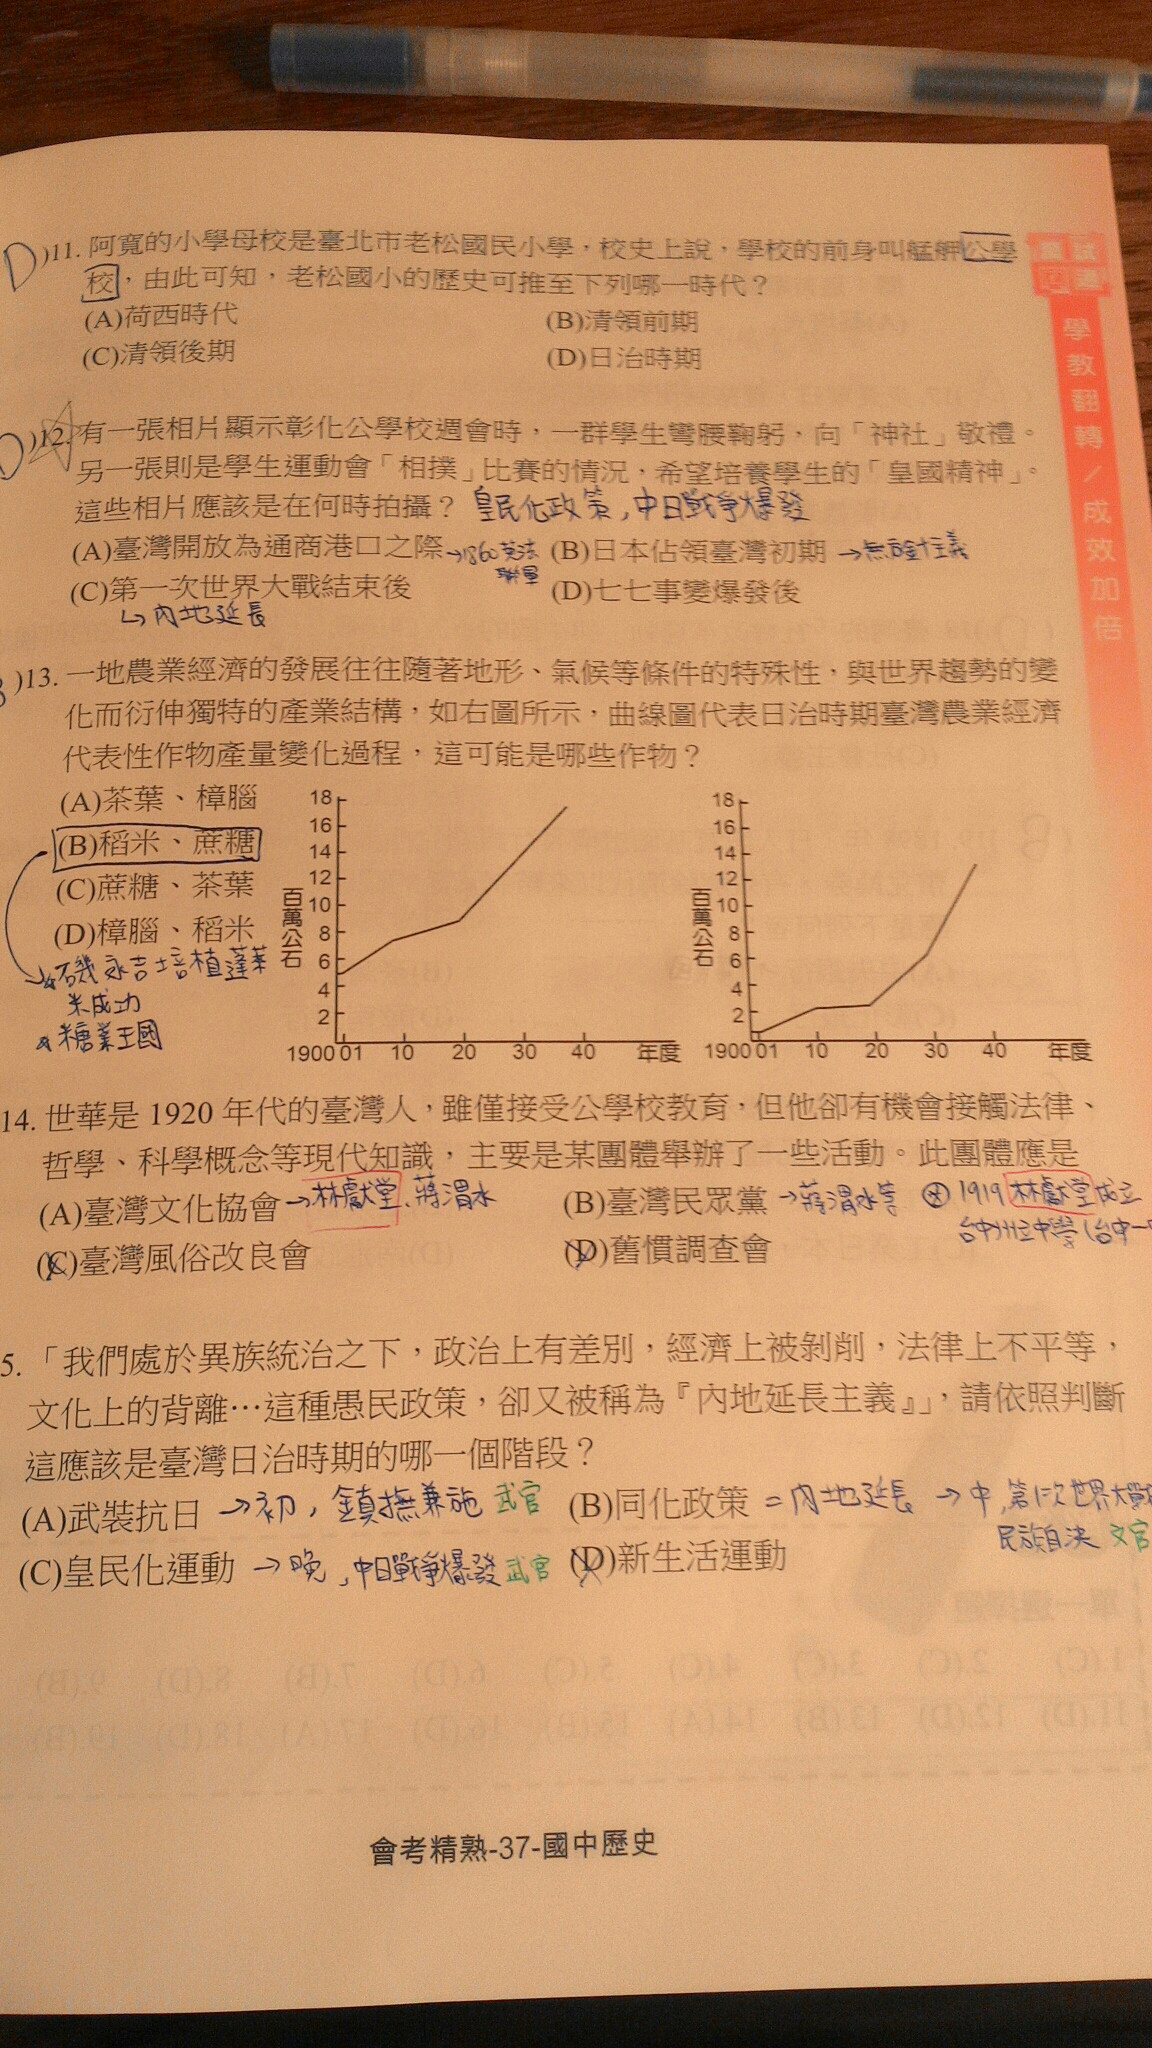 D)11. 阿寬的小學母校是臺北市老松國民小學,校史上說,學校的前身叫艋舺公學
校,由此可知,老松國小的歷史可推至下列哪一時代?
(A)荷西時代 (B)清領前期
(C)清領後期 (D)日治時期
學教翻轉/成效加倍
D)12. 有一張相片顯示彰化公學校週會時,一群學生彎腰鞠躬,向「神社」敬禮。
另一張則是學生運動會「相撲」比賽的情況,希望培養學生的「皇國精神」。
這些相片應該是在何時拍攝? 皇民化政策,中日戰爭爆發
(A)臺灣開放為通商港口之際→1860英法 (B)日本佔領臺灣初期 →無方針主義
聯軍
(C)第一次世界大戰結束後 (D)七七事變爆發後
↳內地延長
B)13. 一地農業經濟的發展往往隨著地形、氣候等條件的特殊性,與世界趨勢的變
化而衍伸獨特的產業結構,如右圖所示,曲線圖代表日治時期臺灣農業經濟
代表性作物產量變化過程,這可能是哪些作物?
(A)茶葉、樟腦
(B)稻米、蔗糖
(C)蔗糖、茶葉
(D)樟腦、稻米
磯永吉培植蓬萊
米成功
糖業王國
18
16
14
12
10
8
6
4
2
百萬公石
1900 01 10 20 30 40 年度
18
16
14
12
10
8
6
4
2
百萬公石
1900 01 10 20 30 40 年度
14. 世華是 1920 年代的臺灣人,雖僅接受公學校教育,但他卻有機會接觸法律、
哲學、科學概念等現代知識,主要是某團體舉辦了一些活動。此團體應是
(A)臺灣文化協會→林獻堂、蔣渭水 (B)臺灣民眾黨→蔣渭水等 1919林獻堂成立
台中州立中學(台中一
(C)臺灣風俗改良會 (D)舊慣調查會
5. 「我們處於異族統治之下,政治上有差別,經濟上被剝削,法律上不平等,
文化上的背離…這種愚民政策,卻又被稱為『內地延長主義』」,請依照判斷
這應該是臺灣日治時期的哪一個階段?
(A)武裝抗日 →初,鎮撫兼施 武官 (B)同化政策 =內地延長 →中,第1次世界大戰
民族自決 文官
(C)皇民化運動 →晚,中日戰爭爆發 武官 (D)新生活運動
會考精熟-37-國中歷史